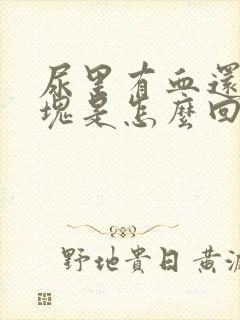 尿里有血還
塊是怎麼回
野地貴日黄